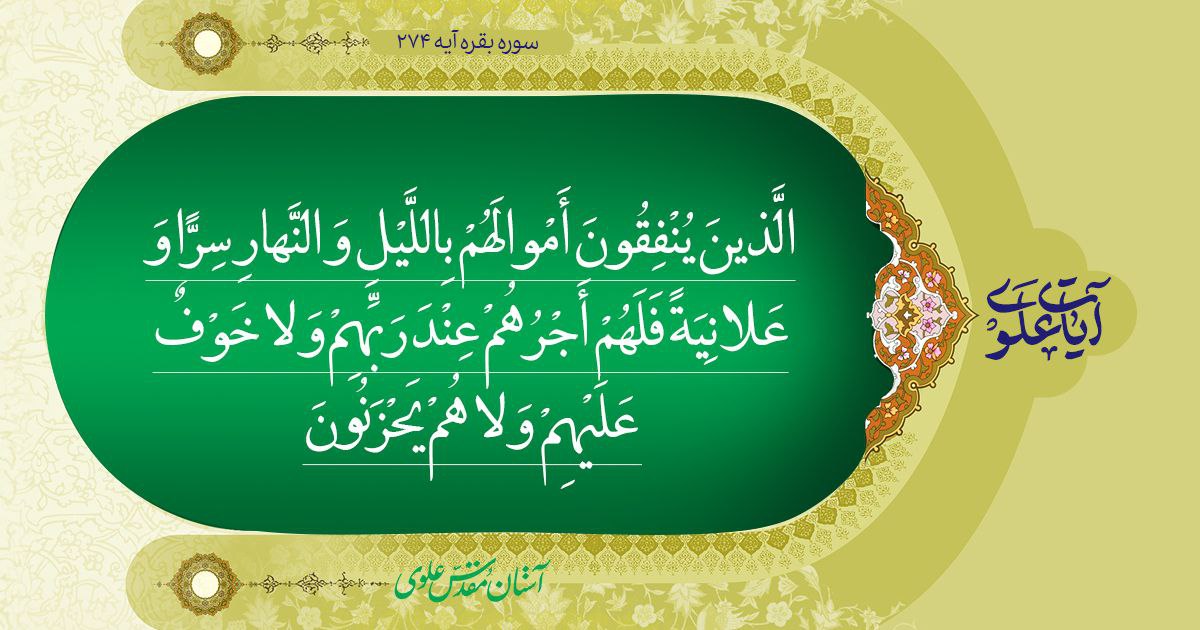 سوره بقره آیه ۲۷۴
الَّذينَ يُنْفِقُونَ أَمْوالَهُمْ بِاللَّيْلِ وَ النَّهارِ سِرًّا وَ
عَلانِيَةً فَلَهُمْ أَجْرُهُمْ عِنْدَ رَبِّهِمْ وَ لا خَوْفٌ
عَلَيْهِمْ وَ لا هُمْ يَحْزَنُونَ
آیات علوی
آستان مقدس علوی